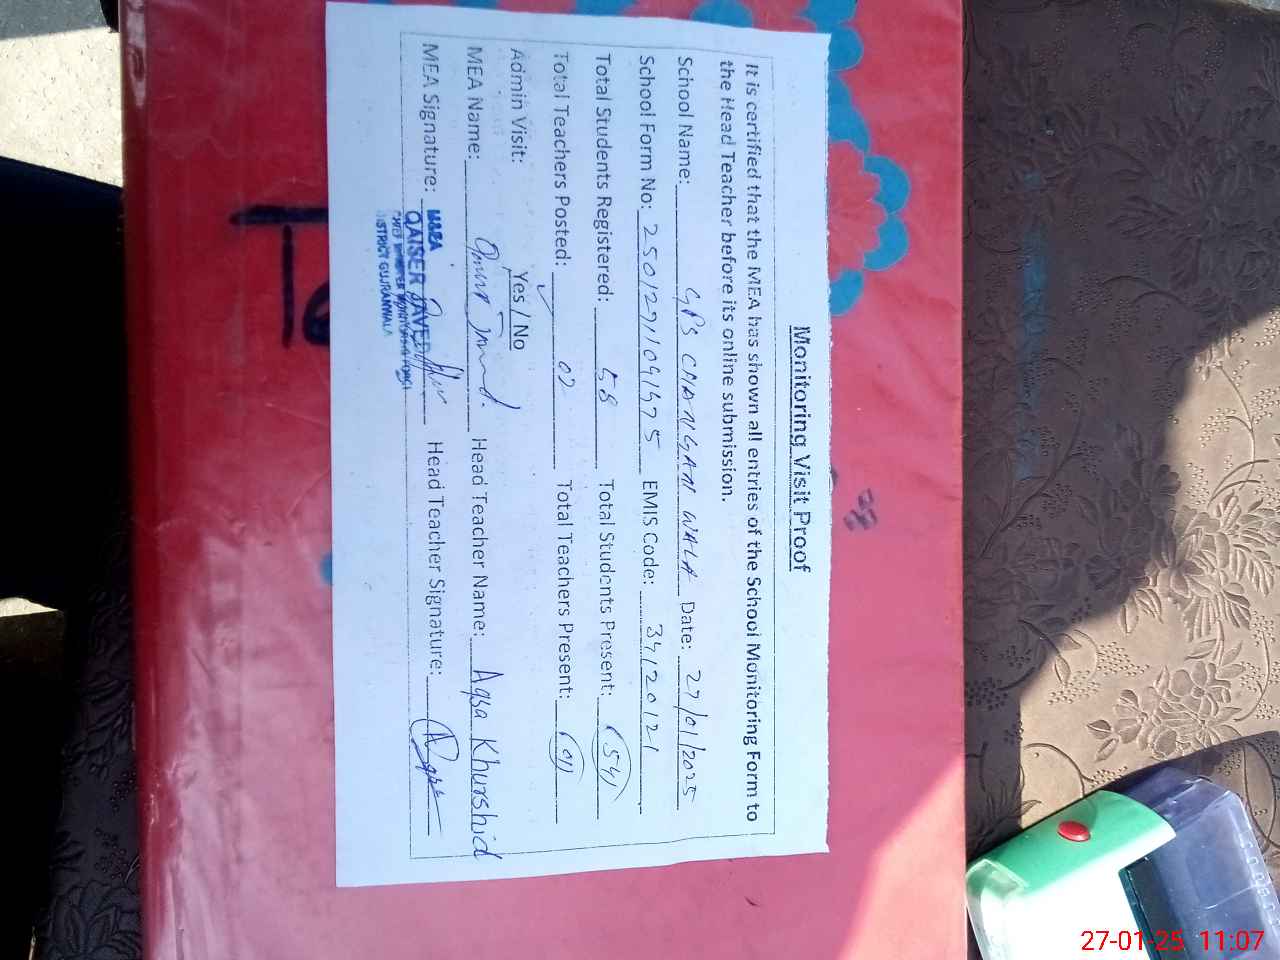 Monitoring Visit Proof
It is certified that the MEA has shown all entries of the School Monitoring Form to
the Head Teacher before its online submission.
School Name: GPS CHANGAN WALA Date: 27/01/2025
School Form No: EMIS Code: 34120121
Total Students Registered: 58 Total Students Present: 54
Total Teachers Posted: 02 Total Teachers Present: 01
Admin Visit: Yes / No
MEA Name: Head Teacher Name: Aqsa Khurshid
MEA Signature: Head Teacher Signature: Aqsa
M&EA
QAISER JAVED
DISTRICT GUJRANWALA
27-01-25 11:07